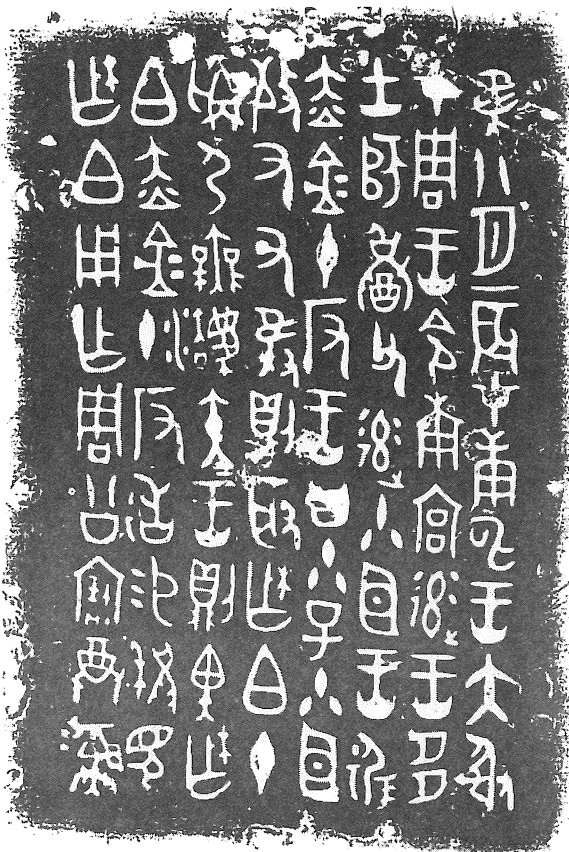 隹八月辰才庚申王大射
才周王令南宮率王多
士師𠭯父率小臣王遟
赤金十反王曰小子小臣
敬又又隻則取柞白十
爯弓無灋矢王則畀柞
白赤金十反䢦易柷見
柞白用乍周公寶尊彝